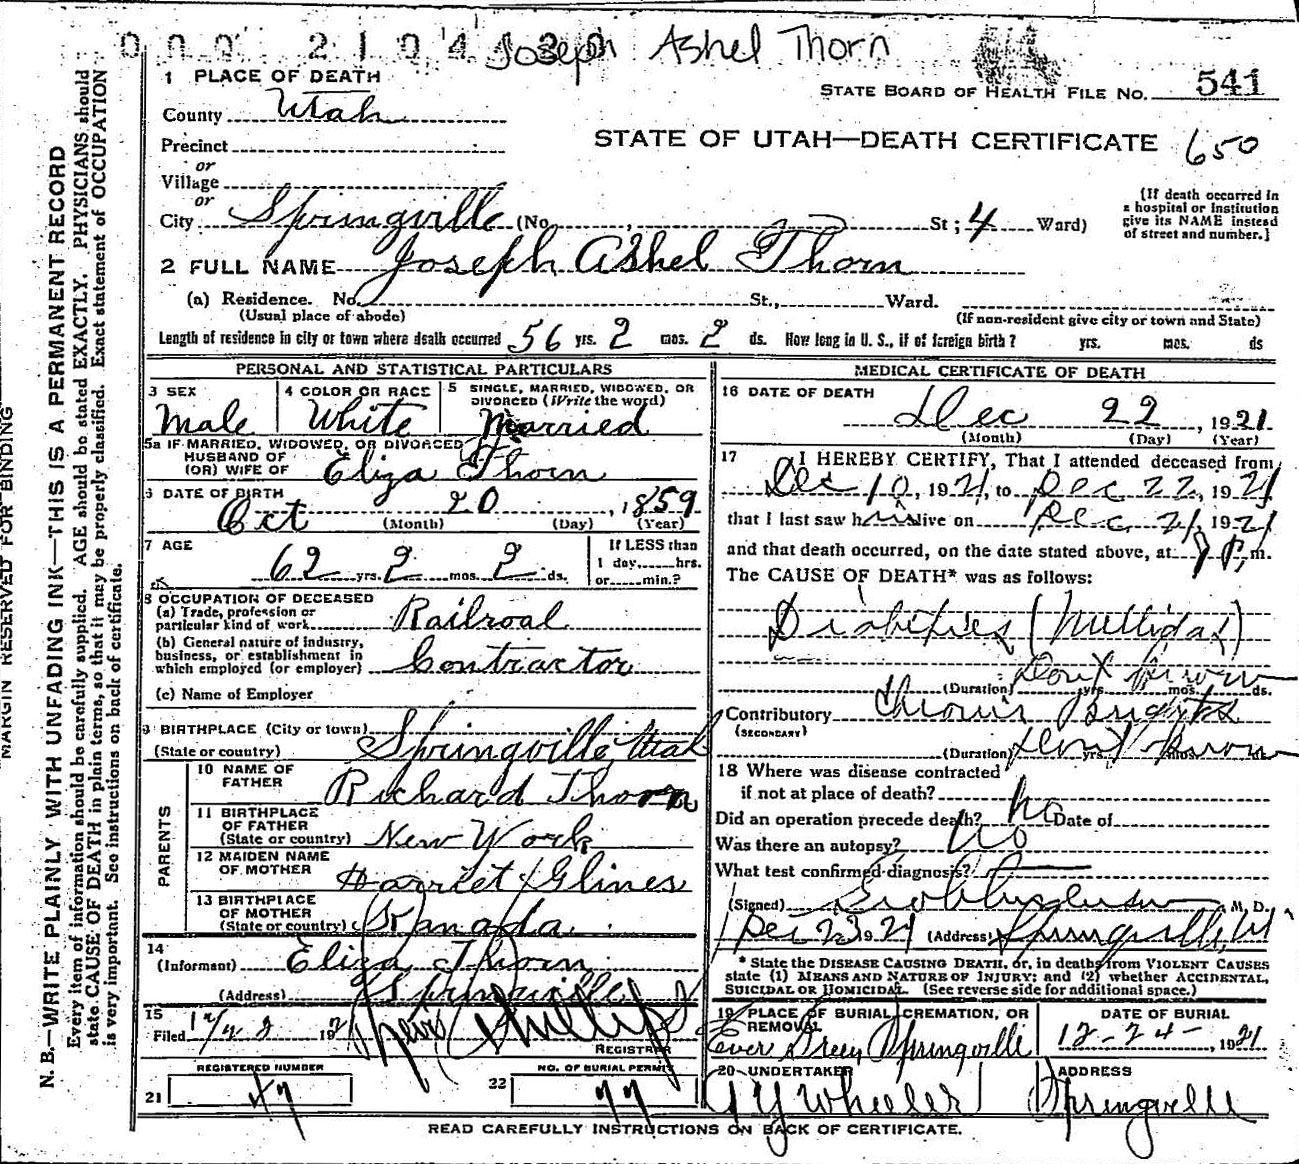 000 210413
Joseph Ashel Thorn
STATE BOARD OF HEALTH FILE NO. 541
STATE OF UTAH—DEATH CERTIFICATE 650
1 PLACE OF DEATH
County Utah
Precinct
or
Village
or
City Springville (No. , St; 4 Ward)
[If death occurred in
a hospital or institution
give its NAME instead
of street and number.]
2 FULL NAME Joseph Ashel Thorn
(a) Residence. No. St., Ward.
(Usual place of abode) (If non-resident give city or town and State)
Length of residence in city or town where death occurred 56 yrs. 2 mos. 2 ds. How long in U. S., if of foreign birth? yrs. mos. ds
PERSONAL AND STATISTICAL PARTICULARS
3 SEX
Male
4 COLOR OR RACE
White
5 SINGLE, MARRIED, WIDOWED, OR
DIVORCED (Write the word)
Married
5a IF MARRIED, WIDOWED, OR DIVORCED
HUSBAND OF
(OR) WIFE OF Eliza Thorn
6 DATE OF BIRTH
Oct 20, 1859
(Month) (Day) (Year)
7 AGE
62 yrs. 2 mos. 2 ds.
If LESS than
1 day, hrs.
or min.?
8 OCCUPATION OF DECEASED
(a) Trade, profession or
particular kind of work Railroal
(b) General nature of industry,
business, or establishment in
which employed (or employer) Contractor
(c) Name of Employer
9 BIRTHPLACE (City or town)
(State or country) Springville Utah
PARENTS
10 NAME OF
FATHER Richard Thorn
11 BIRTHPLACE
OF FATHER
(State or country) New York
12 MAIDEN NAME
OF MOTHER Harriet Glines
13 BIRTHPLACE
OF MOTHER
(State or country) Kanada
14
(Informant) Eliza Thorn
(Address) Springville
15
Filed 192
REGISTRAR
REGISTERED NUMBER
21 47
NO. OF BURIAL PERMIT
22 77
MEDICAL CERTIFICATE OF DEATH
16 DATE OF DEATH
Dec 22, 1921
(Month) (Day) (Year)
17 I HEREBY CERTIFY, That I attended deceased from
Dec 10, 1921, to Dec 22, 1921
that I last saw him alive on Dec 21, 1921
and that death occurred, on the date stated above, at m.
The CAUSE OF DEATH* was as follows:
Diabeties (Mellidas)
Dont Know
(Duration) yrs. mos. ds.
Contributory Chronis Brights
(SECONDARY)
(Duration) Dont Know yrs. mos. ds.
18 Where was disease contracted
if not at place of death?
Did an operation precede death? no Date of
Was there an autopsy? no
What test confirmed diagnosis?
(Signed) M. D.
Dec 23 1921 (Address) Springville, Ut
* State the DISEASE CAUSING DEATH, or, in deaths from VIOLENT CAUSES
state (1) MEANS AND NATURE OF INJURY; and (2) whether ACCIDENTAL,
SUICIDAL OR HOMICIDAL. (See reverse side for additional space.)
19 PLACE OF BURIAL, CREMATION, OR
REMOVAL
Ever Green Springville
DATE OF BURIAL
12-24-, 1921
20 UNDERTAKER
A Y Wheeler
ADDRESS
Springville
READ CAREFULLY INSTRUCTIONS ON BACK OF CERTIFICATE.
MARGIN RESERVED FOR BINDING
N. B.—WRITE PLAINLY WITH UNFADING INK—THIS IS A PERMANENT RECORD
Every item of information should be carefully supplied. AGE should be stated EXACTLY. PHYSICIANS should
state CAUSE OF DEATH in plain terms, so that it may be properly classified. Exact statement of OCCUPATION
is very important. See instructions on back of certificate.